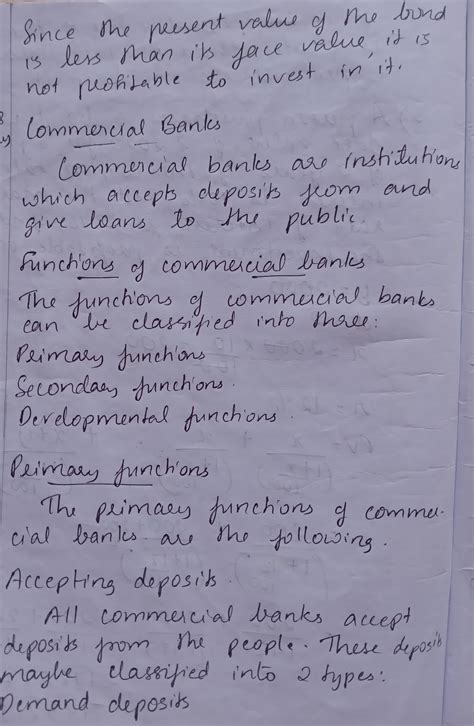 Since the present value of the bond
is less than its face value, it is
not profitable to invest in it.
Commercial Banks
Commercial banks are institutions
which accepts deposits from and
give loans to the public.
Functions of commercial banks
The functions of commercial banks
can be classified into three:
Primary functions
Secondary functions.
Developmental functions.
Primary functions
The primary functions of commer-
cial banks are the following.
Accepting deposits.
All commercial banks accept
deposits from the people. These deposits
maybe classified into 2 types:
Demand deposits